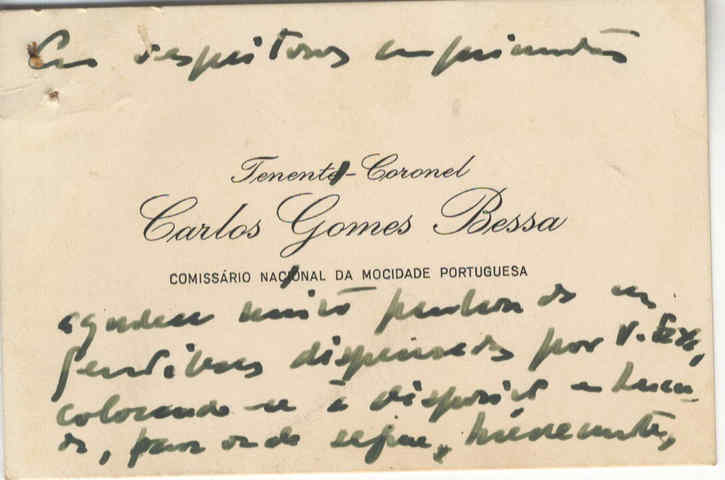 Com respeitosos cumprimentos
Tenente-Coronel
Carlos Gomes Bessa
COMISSÁRIO NACIONAL DA MOCIDADE PORTUGUESA
agradece muito penhorado as
gentilezas dispensadas por V. Exª,
colocando-se à disposição em
para onde segue,